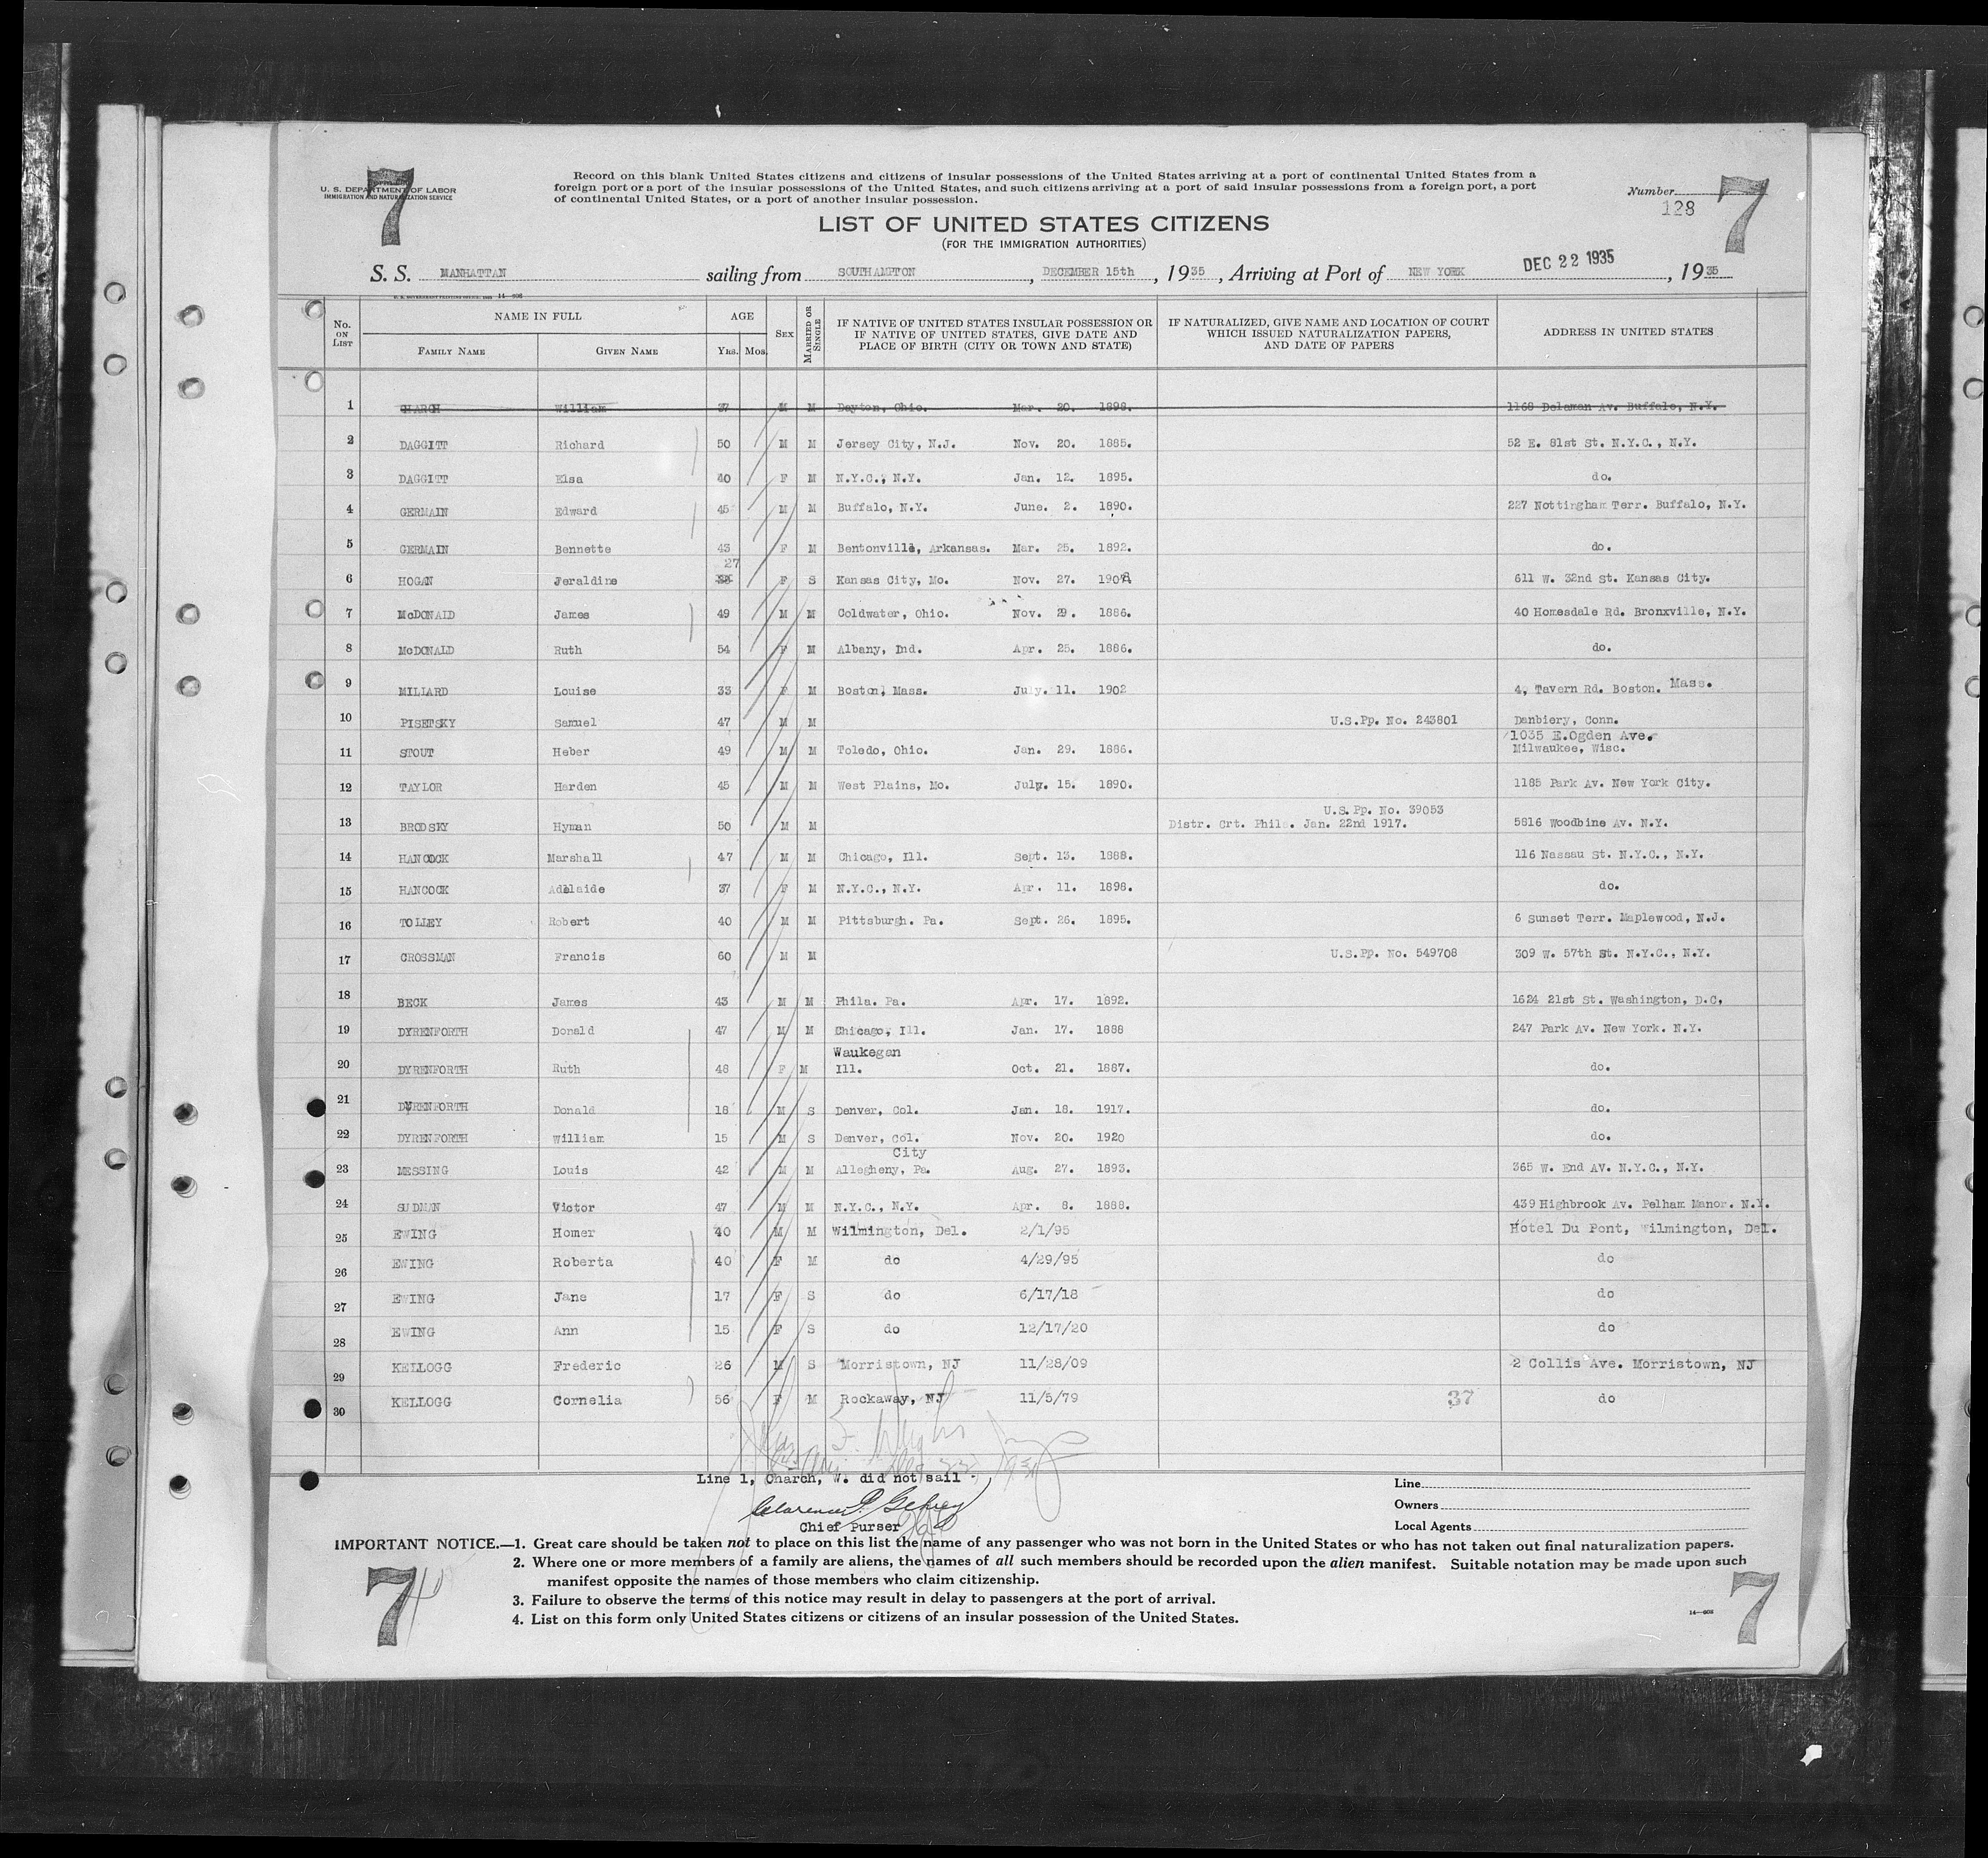 7
U. S. DEPARTMENT OF LABOR
IMMIGRATION AND NATURALIZATION SERVICE
Record on this blank United States citizens and citizens of insular possessions of the United States arriving at a port of continental United States from a
foreign port or a port of the insular possessions of the United States, and such citizens arriving at a port of said insular possessions from a foreign port, a port
of continental United States, or a port of another insular possession.
Number
128
7
LIST OF UNITED STATES CITIZENS
(FOR THE IMMIGRATION AUTHORITIES)
S. S. MANHATTAN sailing from SOUTHAMPTON, DECEMBER 15th, 1935, Arriving at Port of NEW YORK DEC 22 1935, 1935
No. ON LIST NAME IN FULL FAMILY NAME GIVEN NAME AGE YRS. MOS. SEX MARRIED OR SINGLE
IF NATIVE OF UNITED STATES INSULAR POSSESSION OR IF NATIVE OF UNITED STATES, GIVE DATE AND PLACE OF BIRTH (CITY OR TOWN AND STATE)
IF NATURALIZED, GIVE NAME AND LOCATION OF COURT WHICH ISSUED NATURALIZATION PAPERS, AND DATE OF PAPERS
ADDRESS IN UNITED STATES
1 CHARCH William 37 M M Dayton, Ohio. Mar. 20. 1898. 1168 Delaman Av. Buffalo, N.Y.
2 DAGGITT Richard 50 M M Jersey City, N.J. Nov. 20. 1885. 52 E. 81st St. N.Y.C., N.Y.
3 DAGGITT Elsa 40 F M N.Y.C., N.Y. Jan. 12. 1895. do.
4 GERMAIN Edward 45 M M Buffalo, N.Y. June. 2. 1890. 227 Nottingham Terr. Buffalo, N.Y.
5 GERMAIN Bennette 43 F M Bentonville, Arkansas. Mar. 25. 1892. do.
27
6 HOGAN Jeraldine F S Kansas City, Mo. Nov. 27. 1908. 611 W. 32nd St. Kansas City.
7 McDONALD James 49 M M Coldwater, Ohio. Nov. 29. 1886. 40 Homesdale Rd. Bronxville, N.Y.
8 McDONALD Ruth 54 F M Albany, Ind. Apr. 25. 1886. do.
9 MILLARD Louise 33 F M Boston, Mass. July. 11. 1902 4, Tavern Rd. Boston. Mass.
10 PISETSKY Samuel 47 M M U.S.Pp. No. 243801 Danbiery, Conn.
1035 E.Ogden Ave.
11 STOUT Heber 49 M M Toledo, Ohio. Jan. 29. 1886. Milwaukee, Wisc.
12 TAYLOR Harden 45 M M West Plains, Mo. July. 15. 1890. 1185 Park Av. New York City.
U.S.Pp. No. 39053
13 BRODSKY Hyman 50 M M Distr. Crt. Phila. Jan. 22nd 1917. 5816 Woodbine Av. N.Y.
14 HANCOCK Marshall 47 M M Chicago, Ill. Sept. 13. 1888. 116 Nassau St. N.Y.C., N.Y.
15 HANCOCK Adelaide 37 F M N.Y.C., N.Y. Apr. 11. 1898. do.
16 TOLLEY Robert 40 M M Pittsburgh. Pa. Sept. 26. 1895. 6 Sunset Terr. Maplewood, N.J.
17 CROSSMAN Francis 60 M M U.S.Pp. No. 549708 309 W. 57th St. N.Y.C., N.Y.
18 BECK James 43 M M Phila. Pa. Apr. 17. 1892. 1624 21st St. Washington, D.C.
19 DYRENFORTH Donald 47 M M Chicago, Ill. Jan. 17. 1888 247 Park Av. New York. N.Y.
Waukegan
20 DYRENFORTH Ruth 48 F M Ill. Oct. 21. 1887. do.
21 DYRENFORTH Donald 18 M S Denver, Col. Jan. 18. 1917. do.
22 DYRENFORTH William 15 M S Denver, Col. Nov. 20. 1920 do.
City
23 MESSING Louis 42 M M Allegheny, Pa. Aug. 27. 1893. 365 W. End AV. N.Y.C., N.Y.
24 SUDMAN Victor 47 M M N.Y.C., N.Y. Apr. 8. 1888. 439 Highbrook Av. Pelham Manor. N.Y.
25 EWING Homer 40 M M Wilmington, Del. 2/1/95 Hotel Du Pont, Wilmington, Del.
26 EWING Roberta 40 F M do 4/29/95 do
27 EWING Jane 17 F S do 6/17/18 do
28 EWING Ann 15 F S do 12/17/20 do
29 KELLOGG Frederic 26 M S Morristown, NJ 11/28/09 2 Collis Ave. Morristown, NJ
30 KELLOGG Cornelia 56 F M Rockaway, NJ 11/5/79 37 do
Line 1, Charch, W. did not sail -
Chief Purser
Line
Owners
Local Agents
IMPORTANT NOTICE.—1. Great care should be taken not to place on this list the name of any passenger who was not born in the United States or who has not taken out final naturalization papers.
2. Where one or more members of a family are aliens, the names of all such members should be recorded upon the alien manifest. Suitable notation may be made upon such
manifest opposite the names of those members who claim citizenship.
3. Failure to observe the terms of this notice may result in delay to passengers at the port of arrival.
4. List on this form only United States citizens or citizens of an insular possession of the United States.
7
7